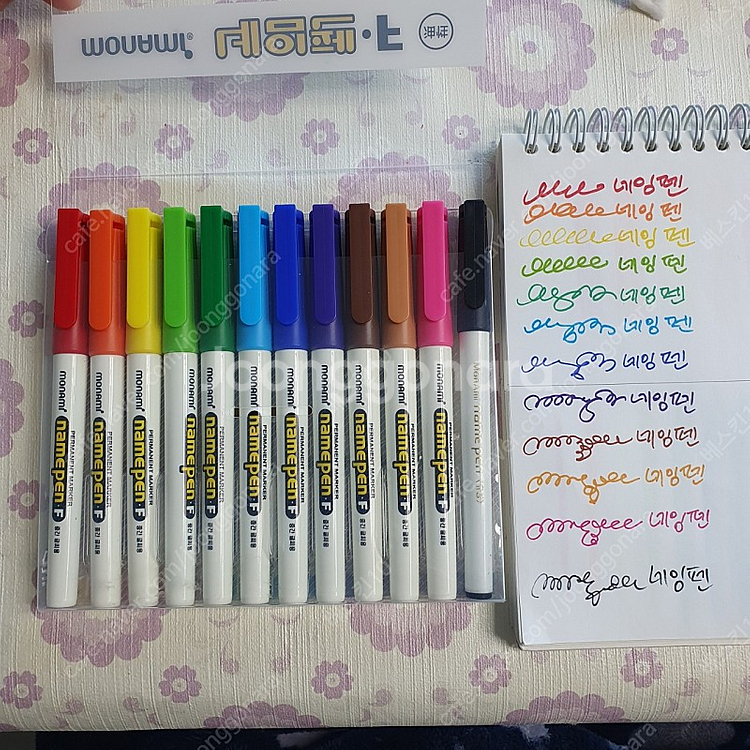 monami® 네임펜·F
monami® namepen·F PERMANENT MARKER 중간 글씨용
monami® namepen·F PERMANENT MARKER 중간 글씨용
monami® namepen·F PERMANENT MARKER 중간 글씨용
monami® namepen·F PERMANENT MARKER 중간 글씨용
monami® namepen·F PERMANENT MARKER 중간 글씨용
monami® namepen·F PERMANENT MARKER 중간 글씨용
monami® namepen·F PERMANENT MARKER 중간 글씨용
monami® namepen·F PERMANENT MARKER 중간 글씨용
monami® namepen·F PERMANENT MARKER 중간 글씨용
monami® namepen·F PERMANENT MARKER 중간 글씨용
monami® namepen·F PERMANENT MARKER 중간 글씨용
monami name pen
네임펜
네임펜
네임펜
네임펜
네임펜
네임펜
네임펜
네임펜
네임펜
네임펜
네임펜
네임펜
joonggonara